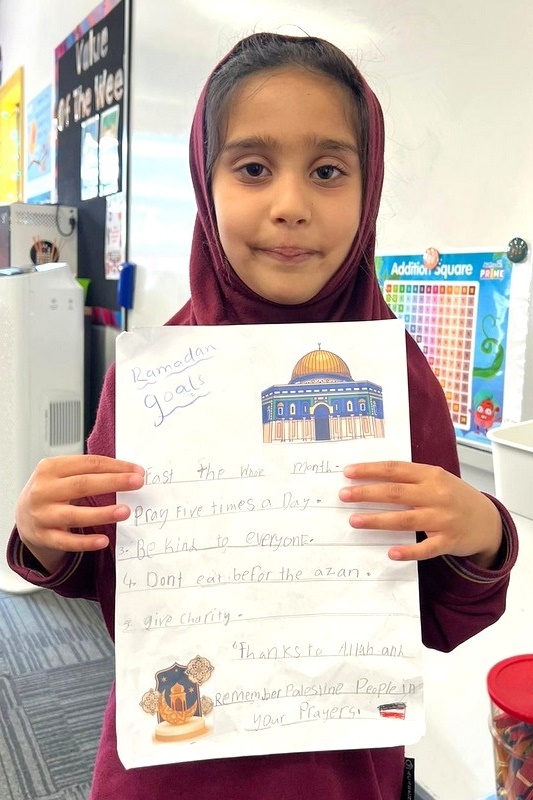 Value
Of The Week
Addition Square
PRIME
Ramadan
goals
Fast the whole month.
Pray Five times a Day.
3. Be kind to everyone.
4. Dont eat befor the azan.
5. give charity.
"Thanks to Allah and
Remember Palestine People in
your Prayers.